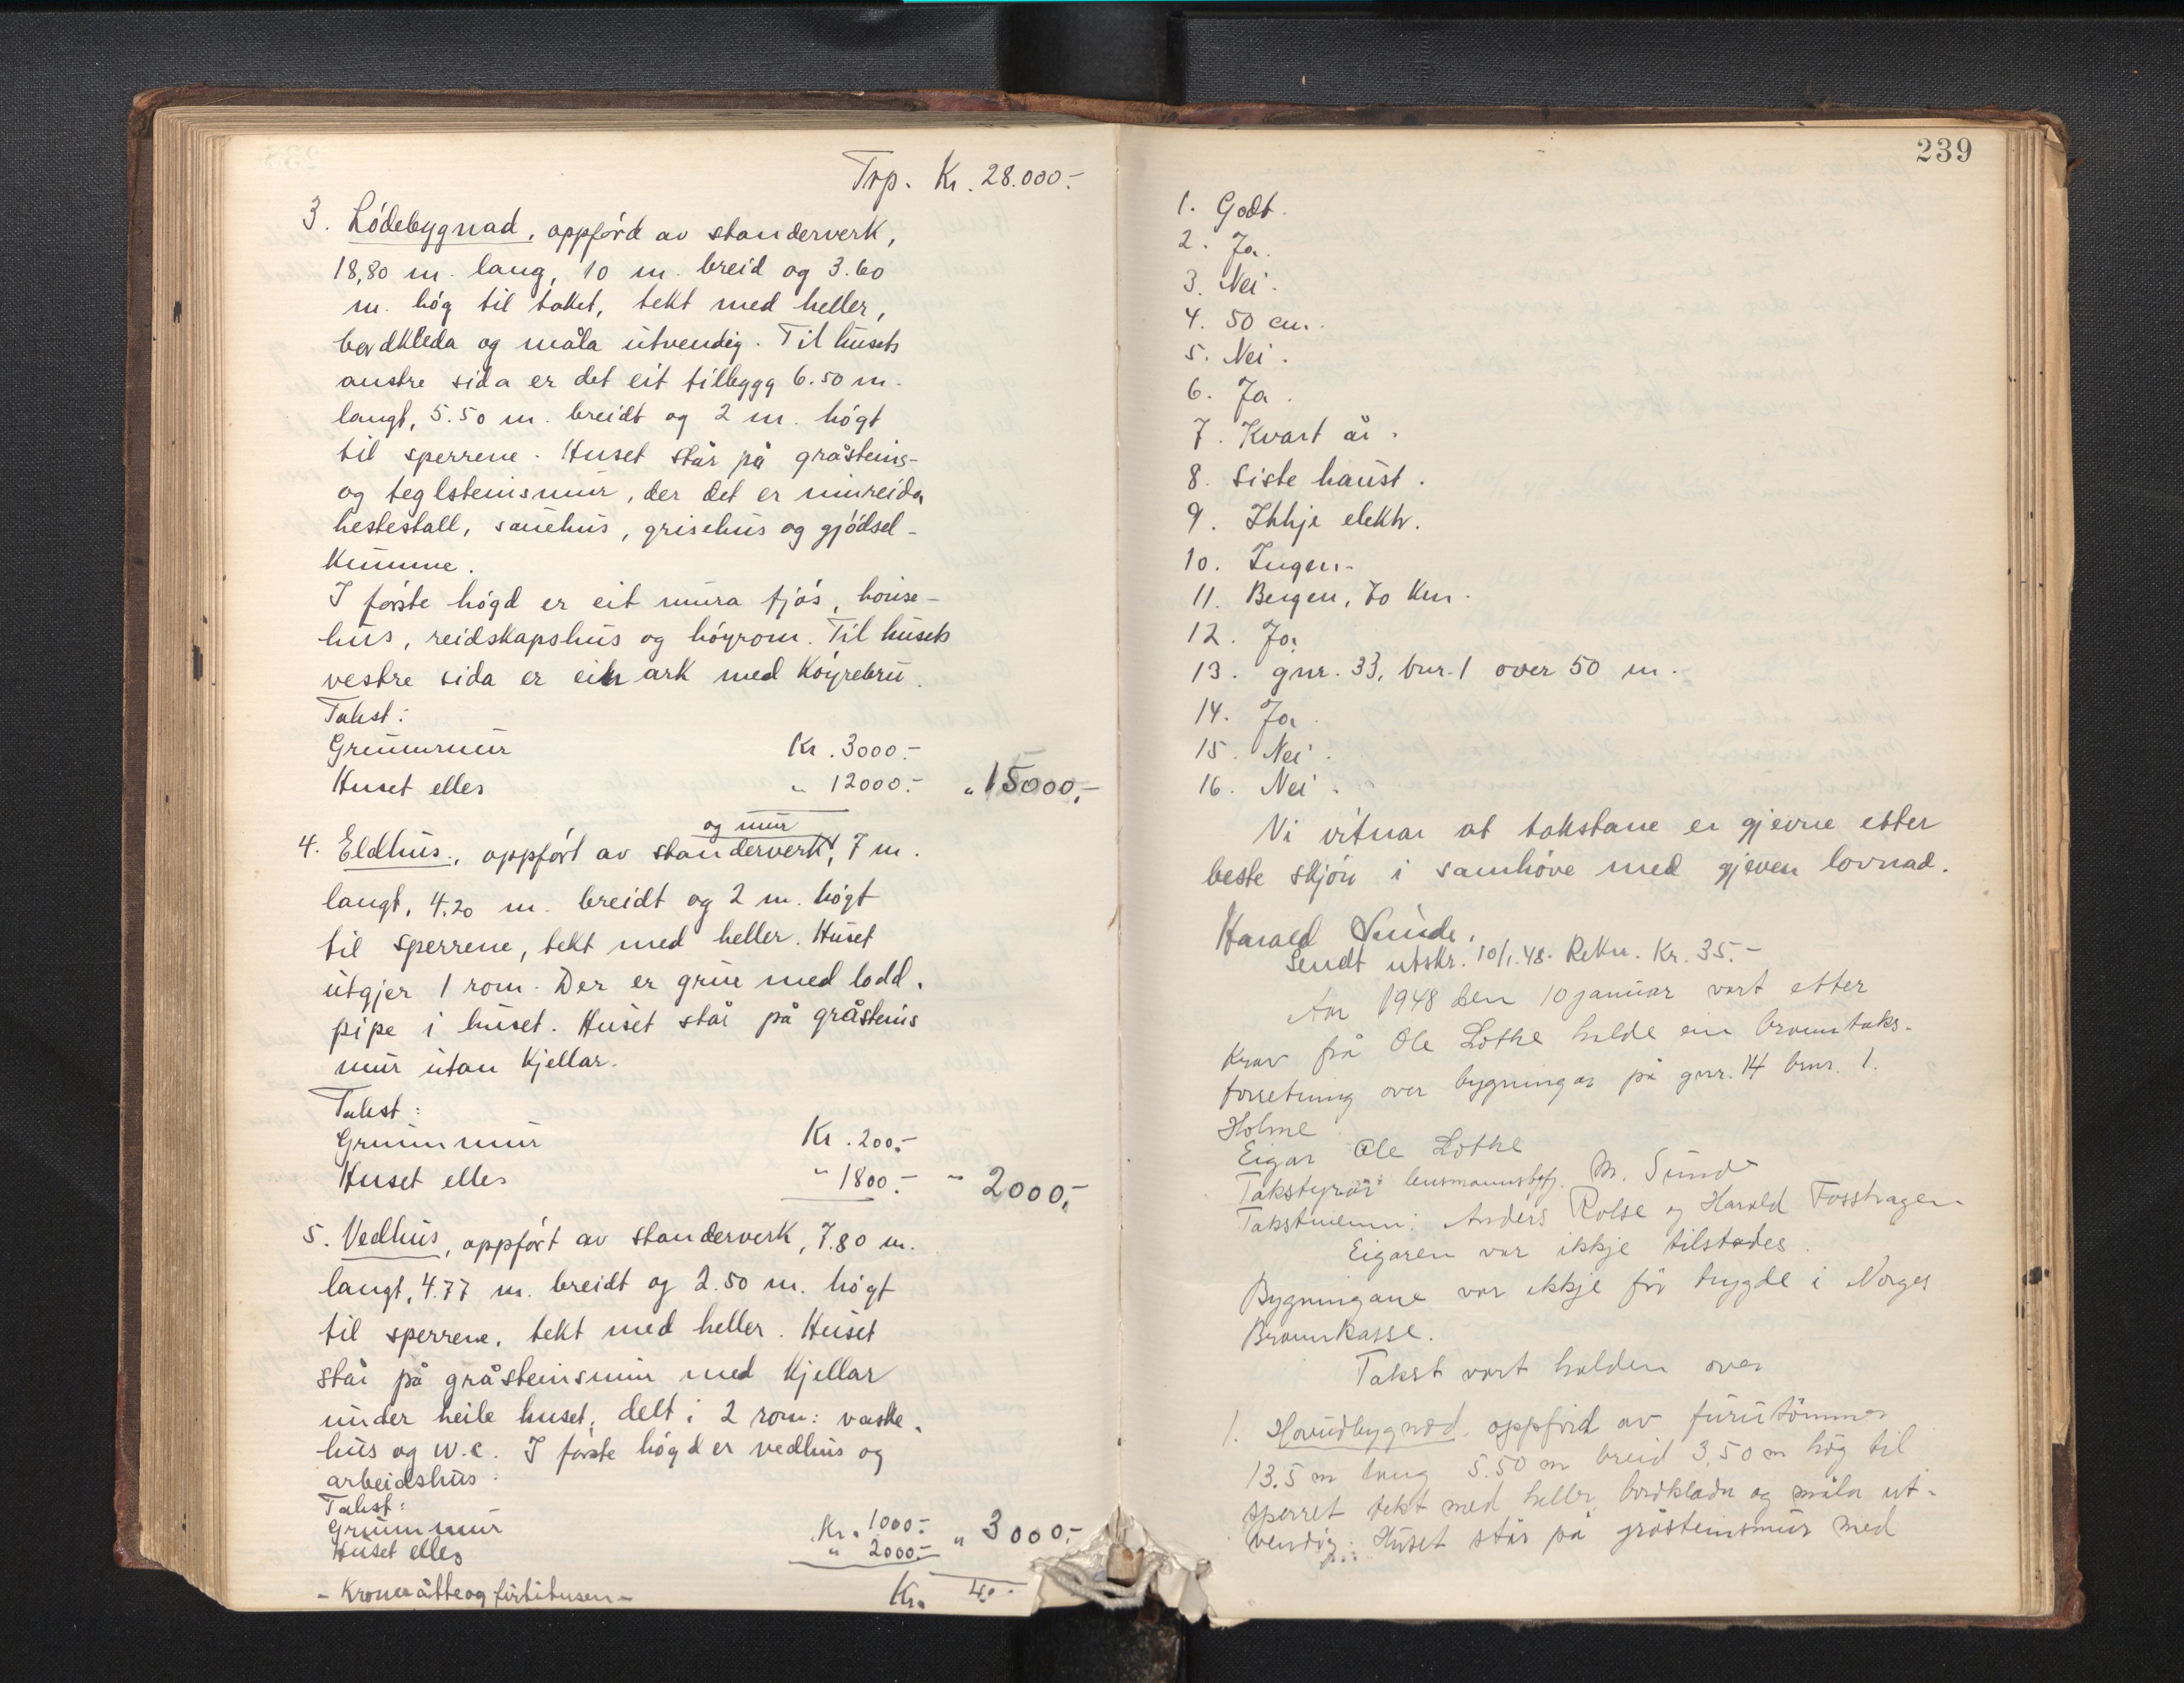 Trp. Kr. 28.000.-
3. Lödebygnad, oppförd av standerverk,
18,80 m. lang, 10 m. breid og 3.60
m. hóg til taket, tekt med heller,
bordkleda og måla utvendig. Til husets
austre sida er det eit tillegg 6.50 m.
langt, 5.50 m. breidt og 2 m. högt
til sperrene. Huset står på gråsteins-
og teglsteinsmur, der det er innreida
hestestall, sauehus, grisehus og gjödsel-
kumme.
I förste högd er eit mura fjós, hönse-
hus, reidskapshus og höyrom. Til husets
vestre sida er ein ark med Köyrebru.
Takst:
Grunnmur Kr. 3000.-
Huset elles " 12000.- " 15000,-
og mur
4. Eldhus., oppfört av standerverk, 7 m.
langt, 4.20 m. breidt og 2 m. högt
til sperrene, tekt med heller. Huset
utgjer 1 rom. Der er grue med lodd.
pipe i huset. Huset står på gråsteins
mur utan Kjellar.
Takst:
Grunnmur Kr. 200.-
Huset elles " 1800.- " 2000,-
5. Vedhus, oppfört av standerverk, 7.80 m.
langt, 4.77 m. breidt og 2.50 m. högt
til sperrene, tekt med heller. Huset
står på gråsteinsmur med Kjellar
under heile huset, delt i 2 rom: vaske-
hus og w.c. I förste högd er vedhus og
arbeidshus.
Takst:
Grunnmur Kr. 1000.-
Huset elles " 2000.- " 3000.-
- Kroner åtteog förtitusen - Kr.
239
1. Godt.
2. Ja.
3. Nei.
4. 50 cm.
5. Nei.
6. Ja.
7. Kvart år.
8. Siste haust.
9. Ikkje elektr.
10. Ingen.
11. Bergen, 70 Km.
12. Ja
13. gnr. 33, bnr. 1 over 50 m.
14. Ja.
15. Nei.
16. Nei.
Vi vitnar at takstane er gjevne etter
beste skjön i samhöve med gjeven lovnad.
Harald Sunde.
Sendt utskr. 10/1.48. Rekn. Kr. 35.-
Aar 1948 den 10 januar vart etter
Krav frå Ole Lothe halde ein branntaks-
forretning over bygningar på gnr. 14 bnr. 1.
Holme
Eigar Ole Lothe
Takstyrar: lensmannsbetj. M. Sunde
Takstmenn: Anders Rolse og Harald Fosshagen
Eigaren var ikkje tilstades.
Bygningane var ikkje för trygde i Norges
Brannkasse.
Takst vart halden over
1. Hovudbygnad, oppförd av furutömmer
13.5 m lang 5.50 m breid 3,50 m hög til
sperret tekt med heller, bordkledn og måla ut-
vendig. Huset står på gråsteinsmur med